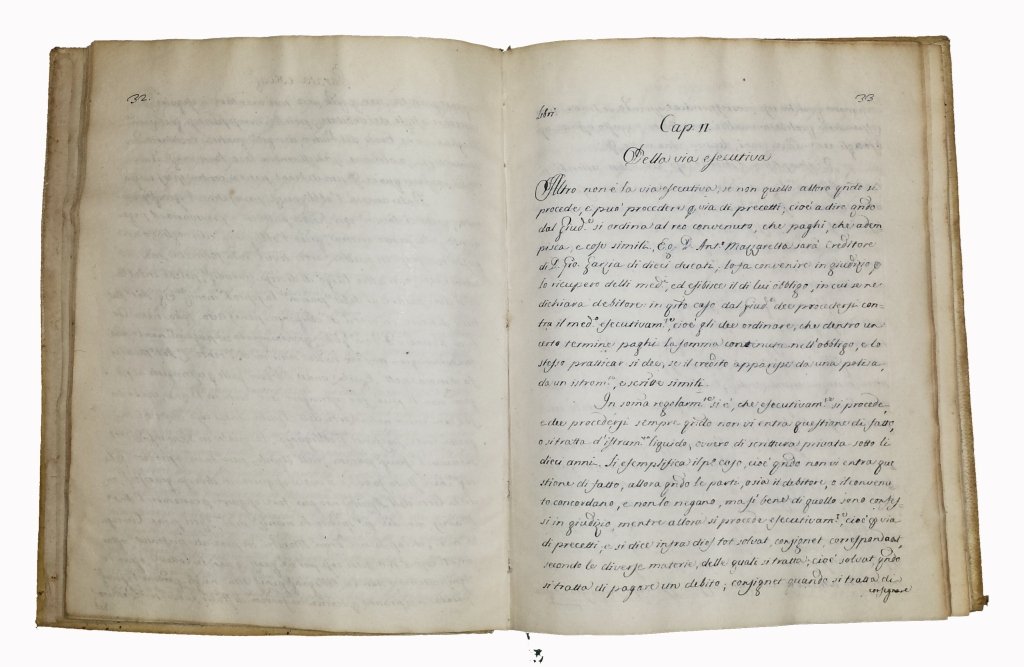 32.
33
Libri
Cap. II
Della via esecutiva
Altro non è la via esecutiva, se non quello allora qndo si
procede, e può procedere p via di precetti; cioè a dire qndo
dal Giud.e si ordina al reo convenuto, che paghi, che adem
pisca, e cose simili, E.g. D. Ant.o Mazzarella sarà creditore
di D. Gio. Garzia di dieci ducati, lo fa convenire in giudizio p
lo ricupero delli med.i, ed esibisce il di lui obligo, in cui se ne
dichiara debitore in qsto caso dal Giud.e dee procedersi con-
tra il med.o esecutivam.te, cioè gli dee ordinare, che dentro un
certo termine paghi la somma contenuta nell'obbligo, e lo
stesso pratticar si dee, se il credito apparisse da una polisa,
da un istrom.to, e scritte simili.
In soma regolarm.te si è, che esecutivam.te si procede,
e dee procedersi sempre qndo non vi entra questione di fatto,
o si tratta d'istrum.to liquido, ovvero di scrittura privata sotto li
dieci anni. Si esemplifica il p.o caso, cioè qndo non vi entra que
stione di fatto, allora qndo le parti, o sia il debitore, o il convenu
to concordano, e non lo negano, ma si bene di quello sono confes
si in giudizio, mentre allora si procede esecutivam.te, cioè p via
di precetti, e si dice infra dies tot solvat, consignet, correspondeat,
secondo le diverse materie, delle quali si tratta; cioè solvat qndo
si tratta di pagare un debito; consignet quando si tratta di
consignare